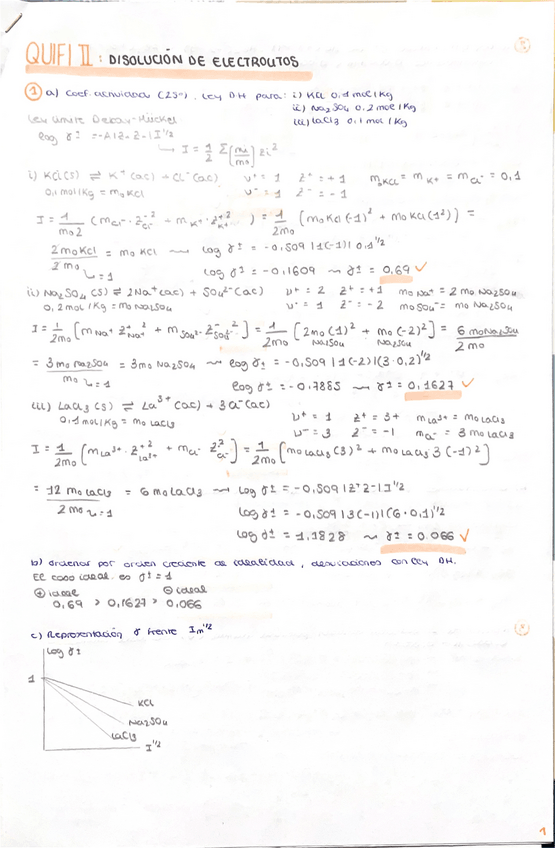 QUIFI II : DISOLUCIÓN DE ELECTROLITOS
1 a) Coef. actividad (25º), Ley DH para: i) KCl 0,1 mol/kg
ii) Na2SO4 0,2 mol/kg
iii) LaCl3 0,1 mol/kg
Ley límite Debay-Hückel
log γ± = -A|Z+Z-|I^1/2
↳ I = 1/2 Σ(mi/mo) zi²
i) KCl(s) ⇌ K+ (ac) + Cl- (ac) ν+ = 1 Z+ = +1 moKCl = mK+ = mCl- = 0,1
0,1 mol/kg = mo KCl ν- = 1 Z- = -1
I = 1/mo2 (mCl- · ZCl-^-2 + mK+ · ZK+^+2) = 1/2mo (moKCl (-1)² + moKCl (1²)) =
2moKCl/2mo = mo KCl ⇝ log γ± = -0,509 |1(-1)| 0,1^1/2
↳=1 log γ± = -0,1609 ⇝ γ± = 0,69 ✓
ii) Na2SO4 (s) ⇌ 2Na+ (ac) + SO4²- (ac) ν+ = 2 Z+ = +1 mo Na+ = 2 mo Na2SO4
0,2 mol/kg = mo Na2SO4 ν- = 1 Z- = -2 mo SO4= = mo Na2SO4
I = 1/2mo [mNa+ ZNa+^+2 + mSO4²- ZSO4²-^-2] = 1/2mo [2mo Na2SO4 (1)² + mo Na2SO4 (-2)²] = 6 mo Na2SO4/2mo
= 3mo Na2SO4/mo ↳=1 = 3mo Na2SO4 ⇝ log γ± = -0,509 |1(-2)|(3·0,2)^1/2
log γ± = -0,7885 ⇝ γ± = 0,1627 ✓
iii) LaCl3 (s) ⇌ La³+ (ac) + 3Cl- (ac)
0,1 mol/kg = mo LaCl3 ν+ = 1 Z+ = 3+ mLa3+ = mo LaCl3
ν- = 3 Z- = -1 mCl- = 3 mo LaCl3
I = 1/2mo [mLa³+ · ZLa3+^+2 + mCl- ZCl-^2] = 1/2mo [mo LaCl3 (3)² + mo LaCl3 3(-1)²]
= 12 mo LaCl3/2mo ↳=1 = 6 mo LaCl3 ⇝ log γ± = -0,509 |Z+Z-|I^1/2
log γ± = -0,509 |3(-1)|(6·0,1)^1/2
log γ± = 1,1828 ⇝ γ± = 0.066 ✓
b) Ordenar por orden creciente de idealidad, desviaciones con ley DH.
El caso ideal es γ± = 1
⊕ ideal ⊖ ideal
0,69 > 0,1627 > 0,066
c) Representación γ frente Im^1/2
log γ±
1
KCl
Na2SO4
LaCl3
I^1/2
1